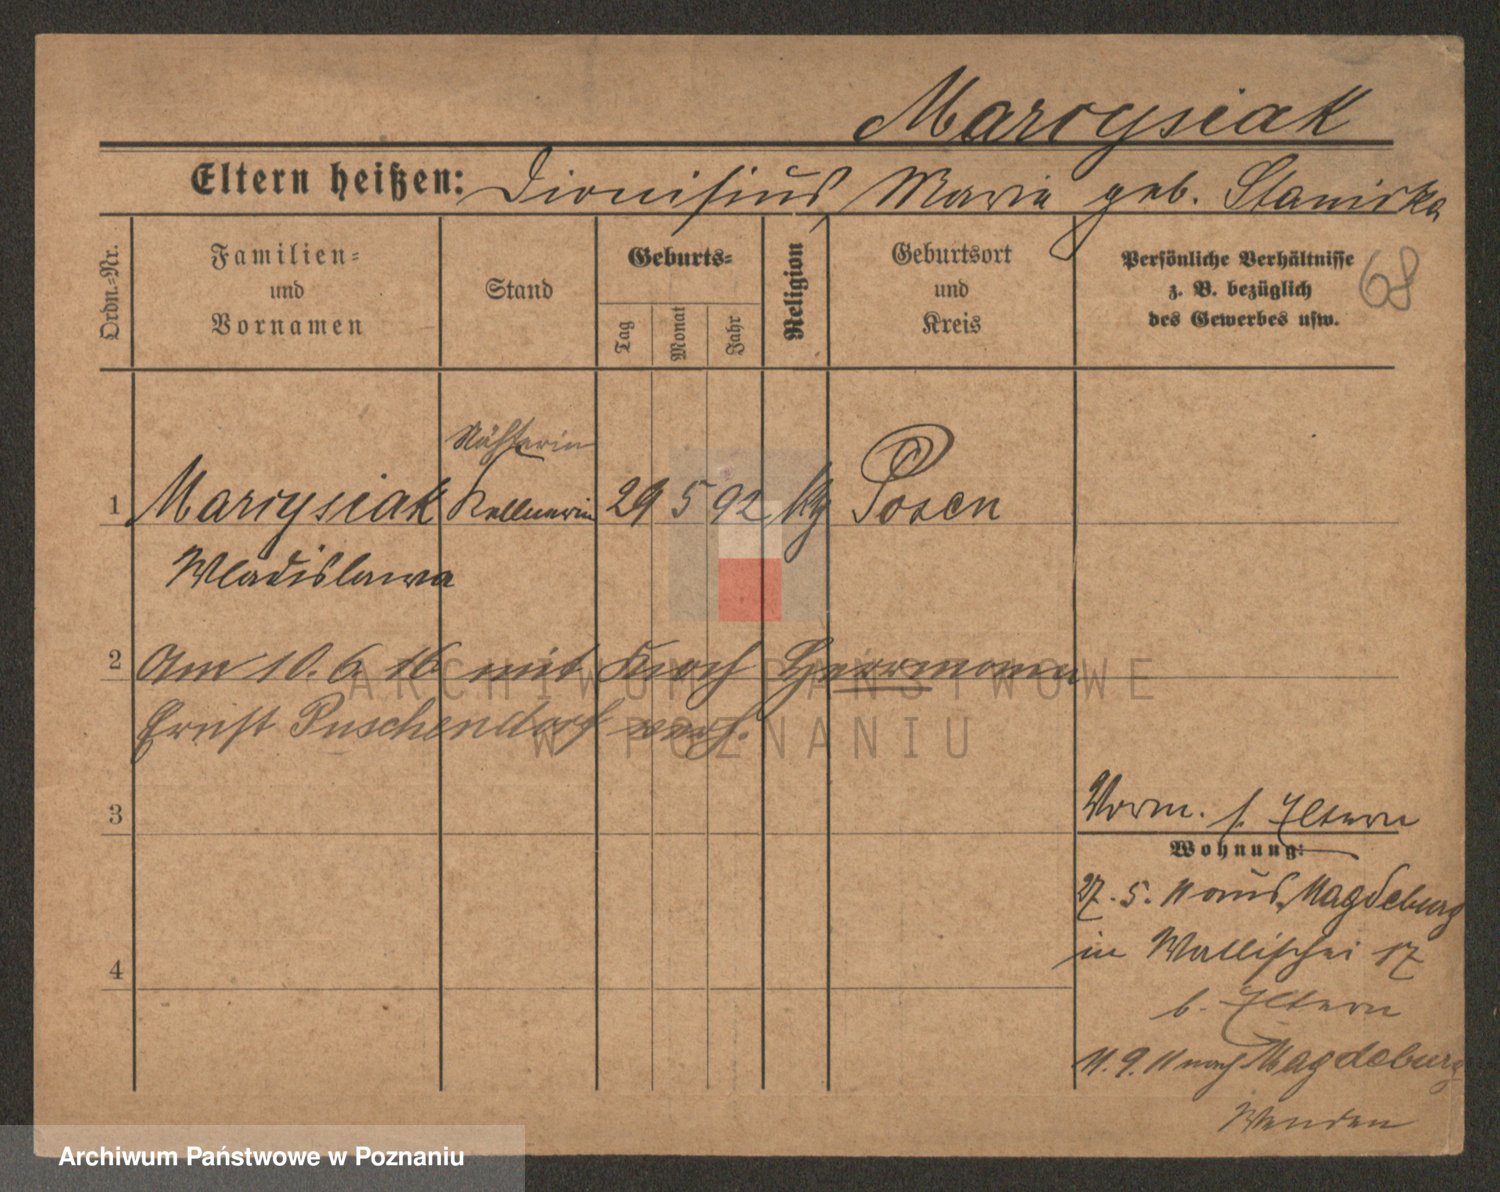 Marcysiak
Eltern heißen: Dionisius, Marie geb. Stanirka
Ordn.-Nr.
Familien-
und
Vornamen
Stand
Geburts-
Tag
Monat
Jahr
Religion
Geburtsort
und
Kreis
Persönliche Verhältnisse
z. B. bezüglich
des Gewerbes usw.
68
Nähterin
1 Marcysiak Kellnerin 29 5 92 kg Posen
Wladislawa
2 Am 10. 6. 16 mit Koch Herrmann
Ernst Puschendorf verh.
3
Vorm. s. Eltern
Wohnung:
27. 5. 11 aus Magdeburg
in Wallischei 17
4
b. Eltern
11. 9. 11 nach Magdeburg
ARCHIWUM PAŃSTWOWE
W POZNANIU
Archiwum Państwowe w Poznaniu